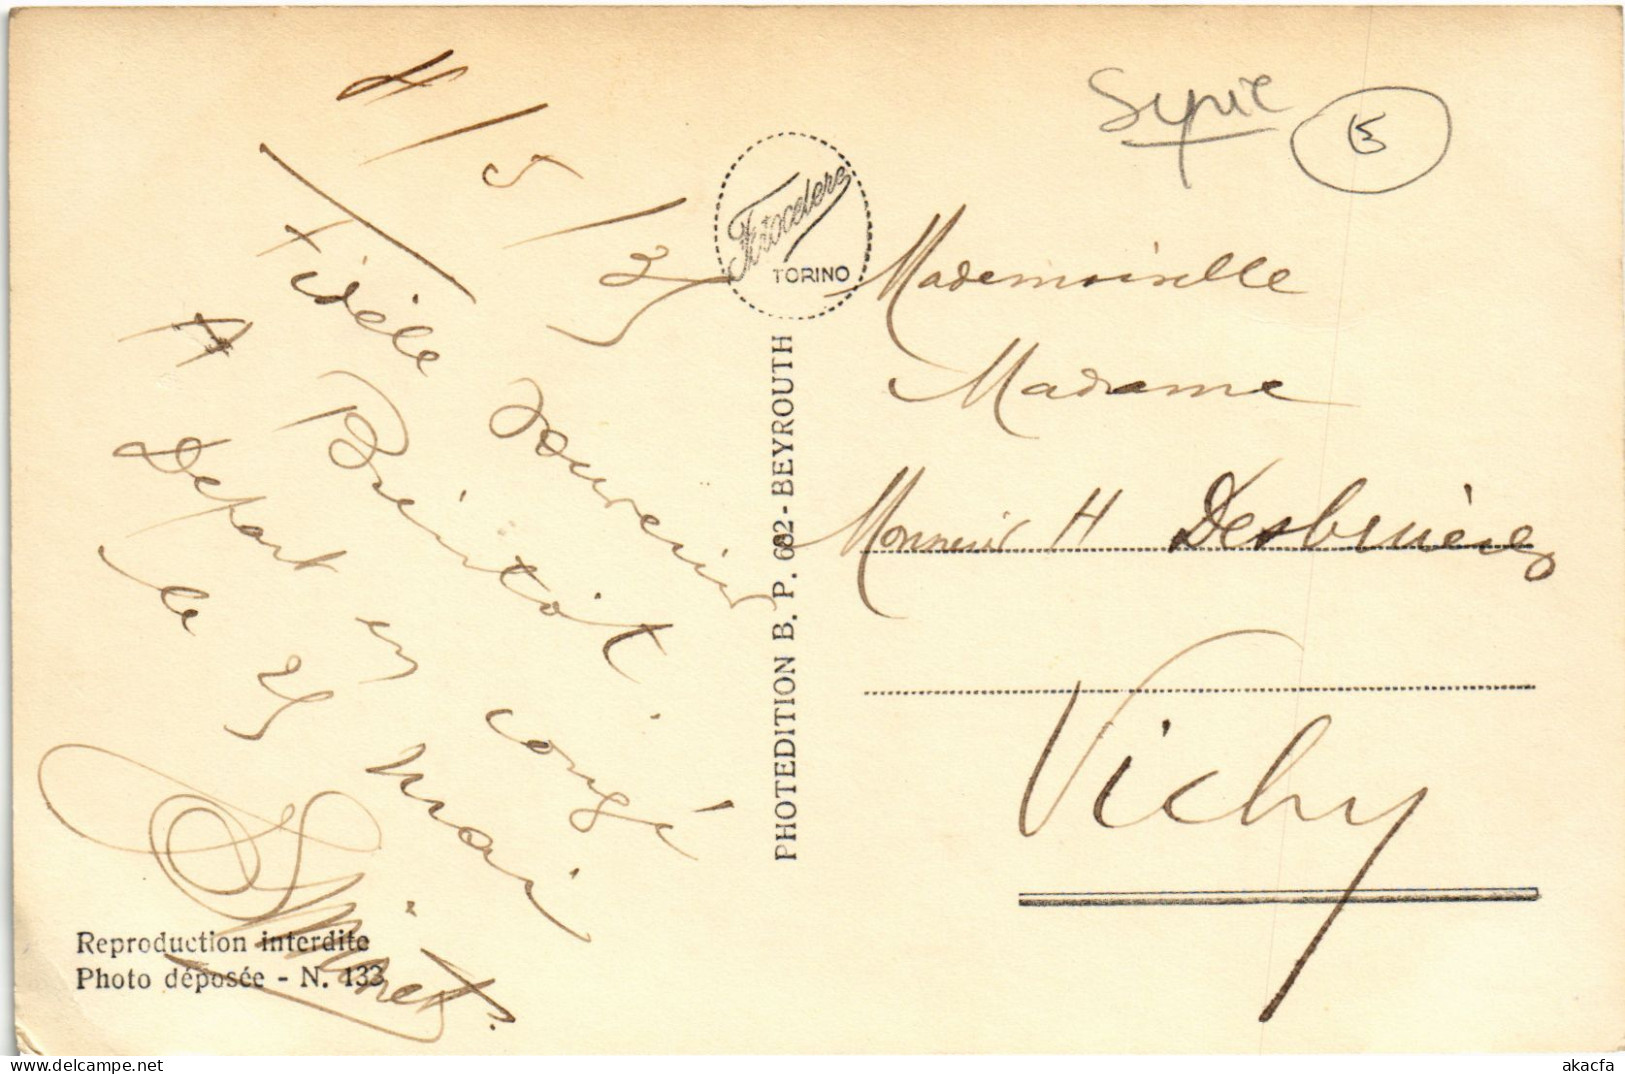 4/5/35
Fidèle souvenir
A Bientôt
Depart en congé
le 25 mai
Syrie
5
Fotocelere
TORINO
PHOTEDITION B. P. 682 - BEYROUTH
Mademoiselle
Madame
Monsieur H Desbruières
Vichy
Reproduction interdite
Photo déposée - N. 133
akacfa